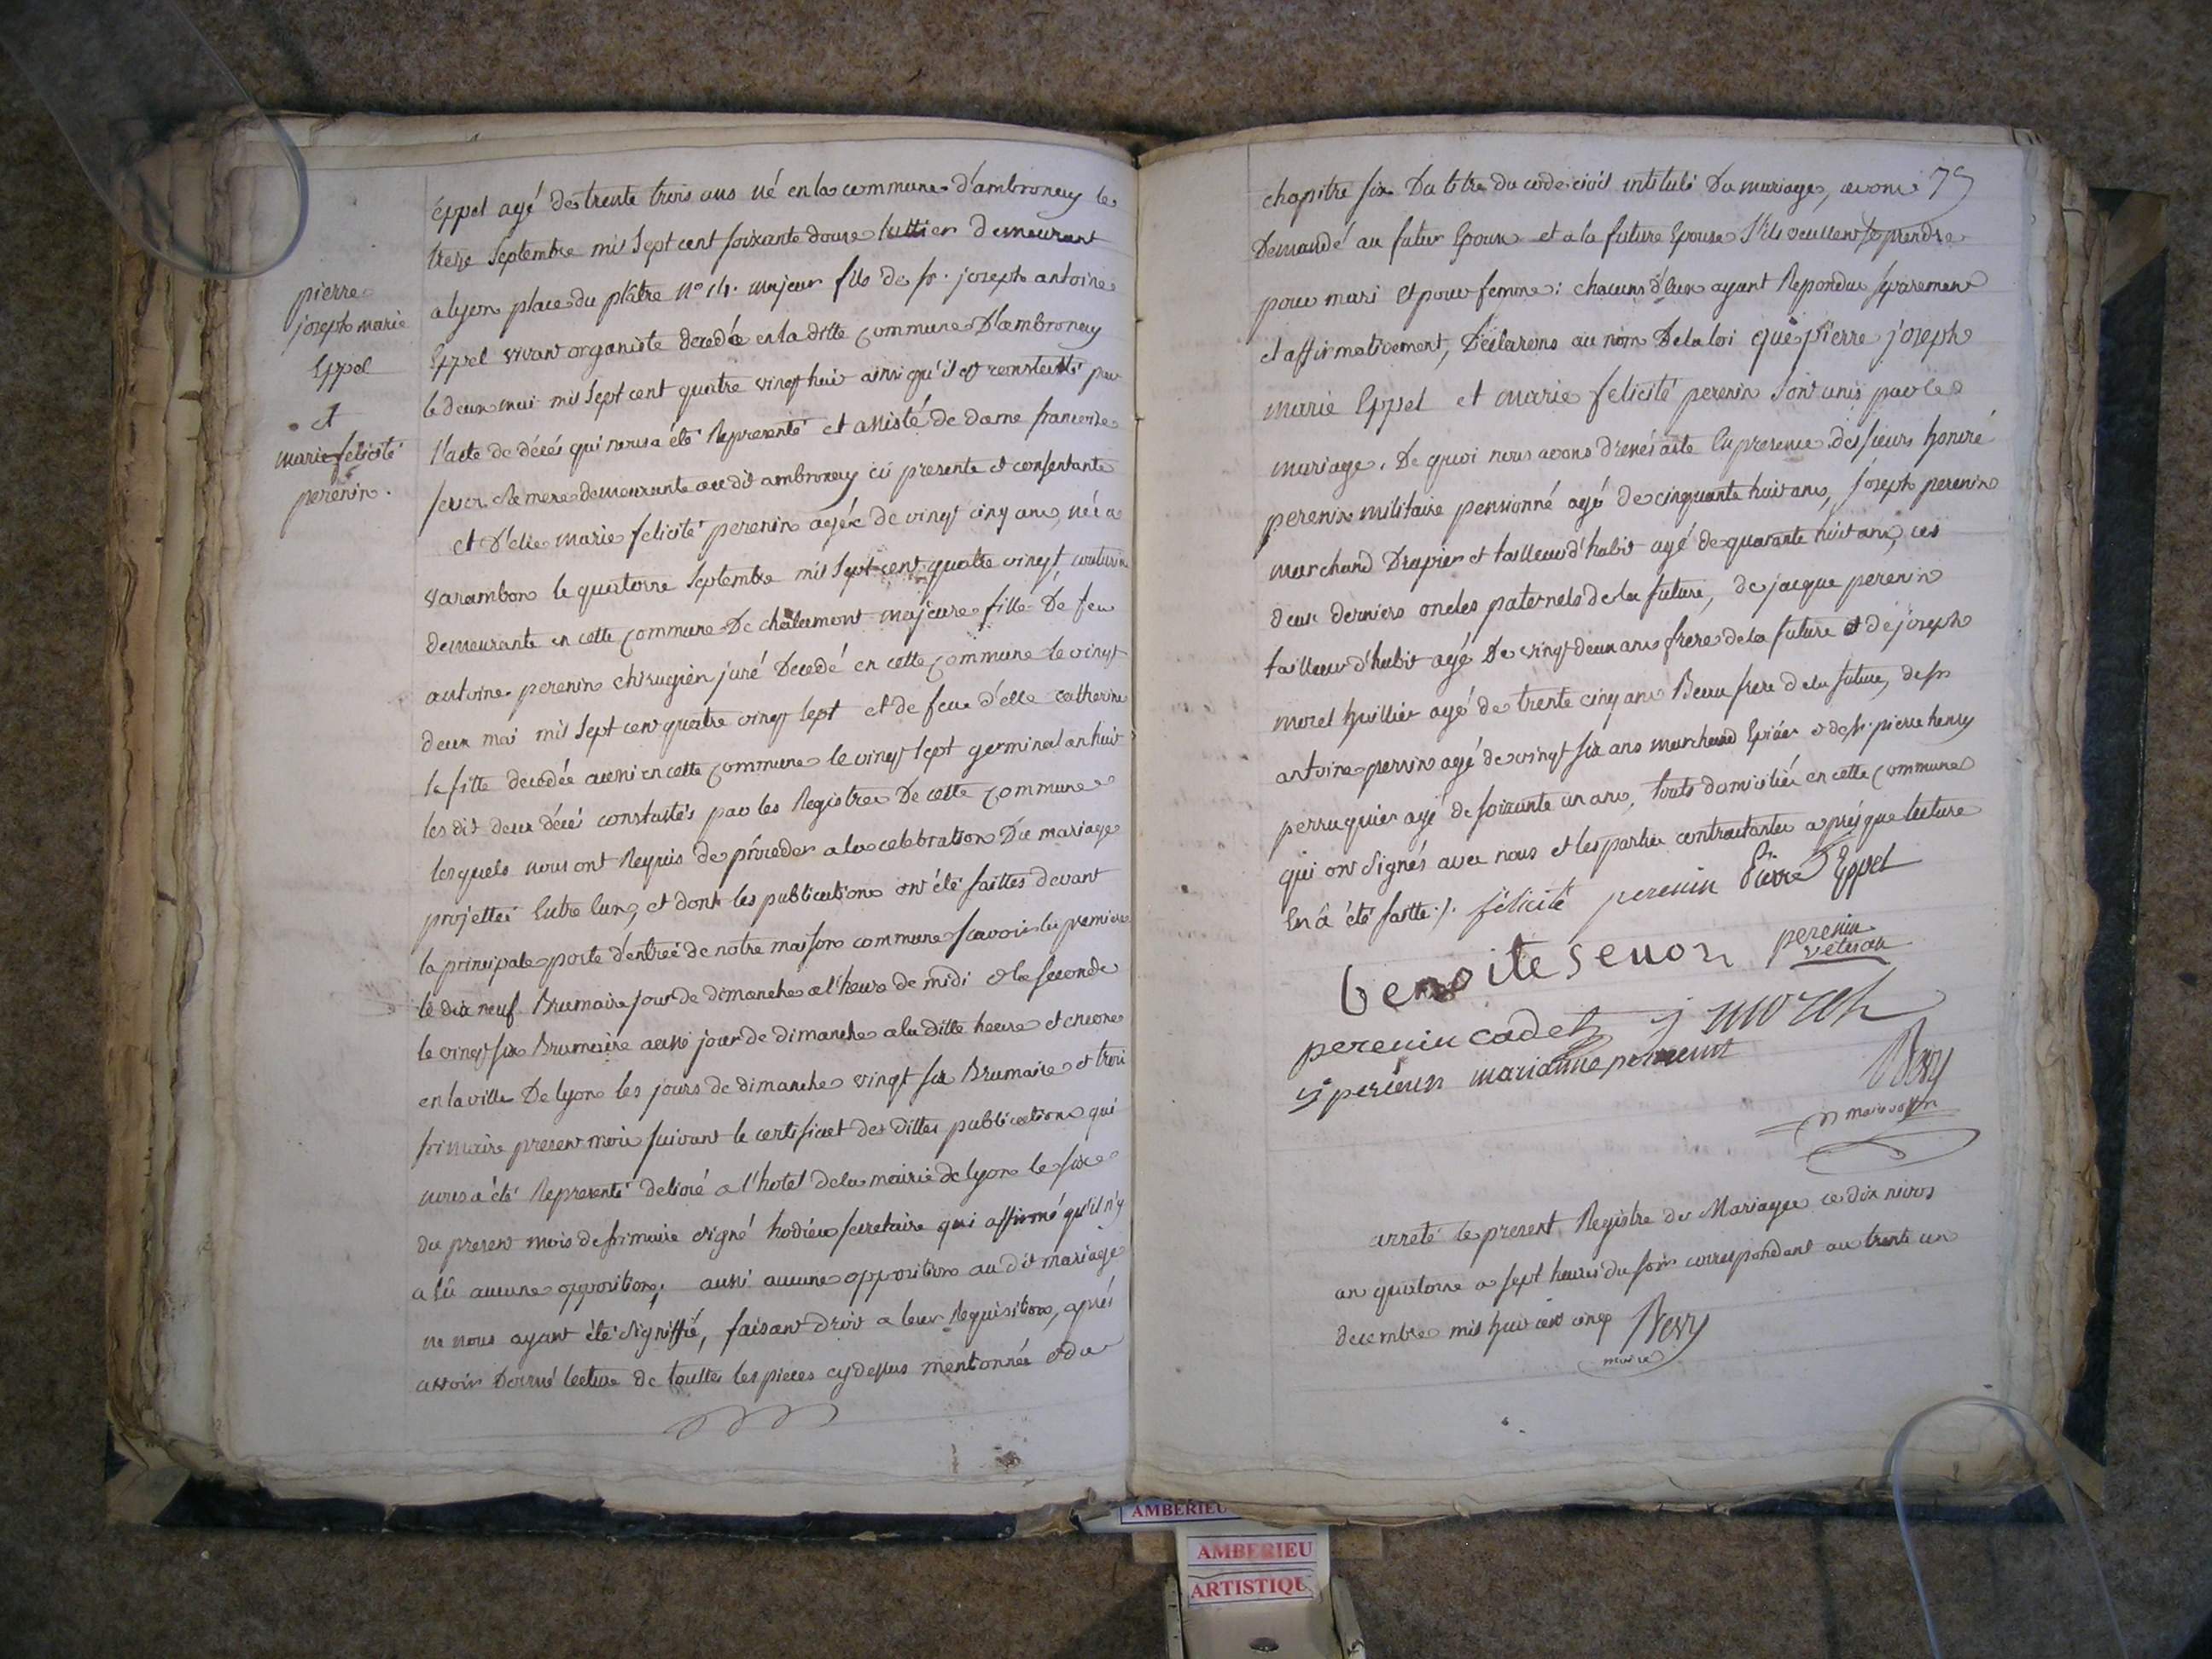 pierre
joseph marie
Eppel
et
marie felicité
perenin.
éppel agé de trente trois ans né en la commune d'ambronay le
treize Septembre mil Sept cent soixante douze luttier demeurant
a lyon place du plâtre n° 14. majeur fils de sr. joseph antoine
Eppel vivant organiste decedé en la ditte commune D'ambronay
le deux mai mil Sept cent quatre vingt huit ainsi qu'il est constaté par
l'acte de décés qui nous a été Representé et assisté de dame francoise
sa mere demeurante au dit ambronay ici presente et consentante
et D'elle marie felicité perenin agée de vingt cinq ans, née a
varambon le quatorze Septembre mil Sept cent quatre vingt, couturiere
demeurante en cette commune De chalamont majeure fille De feu
antoine perenin chirugien juré Decedé en cette commune le vingt
deux mai mil Sept cent quatre vingt sept et de feue d'elle catherine
la fitte decedée aussi en cette commune le vingt sept germinal an huit
les dit deux décés constatés par les Registres De cette commune
lesquels nous ont Requis de procéder a la celebration Du mariage
projetté Entre Eux, et dont les publications ont été faittes devant
la principale porte d'entrée de notre maison commune scavoir la premiere
le dix neuf Brumaire jour de dimanche a l'heure de midi et la seconde
le vingt six Brumaire aussi jour de dimanche a la ditte heure et encore
en la ville De lyon les jours de dimanche vingt six Brumaire et trois
frimaire present mois suivant le certificat des dittes publications qui
nous a été Representé delivré a l'hotel de la mairie de lyon le six
du present mois de frimaire signé hodieu secretaire qui affirmé qu'il n'y
a Eû aucune opposition; aussi aucune opposition au dit mariage
ne nous ayant été signiffié, faisant droit a leur Requisition, aprés
avoir Donné lecture de touttes les pieces cy dessus mentionnée et du
75
chapitre six Du titre du code civil intitulé Du mariage, avons
Demandé au futur Epoux et a la future Epouse S'ils veullent se prendre
pour mari Et pour femme: chacuns d'Eux ayant Repondu séparement
et affirmativement, Déclarons au nom De la loi que pierre joseph
marie Eppel et marie felicité perenin Sont unis par le
mariage. De quoi nous avons dressé acte En presence des sieurs honoré
perenin militaire pensionné agé de cinquante huit ans, joseph perenin
marchand Drapier et tailleur d'habit agé de quarante huit ans, ces
deux derniers oncles paternels de la future, de jacque perenin
tailleur d'habit agé De vingt deux ans frere de la future et de joseph
morel huillier agé de trente cinq ans Beau frere de la future, de sr
antoine perrin agé de vingt six ans marchand Epicier et de sr. pierre henry
perruquier agé de soixante un ans, touts domiciliés en cette commune
qui ont signés avec nous et les parties contractantes aprés que lecture
En â été faitte ./. félicité perenin Pierre Eppel
benoite senon perenin
vétéran
perenin cadet j morel
j perenin marianne perenin
maire
arreté le present Registre des Mariages ce dix nivos
an quatorze a sept heures du soir correspondant au trente un
decembre mil huit cent cinq
maire
AMBERIEU
AMBERIEU
ARTISTIQU